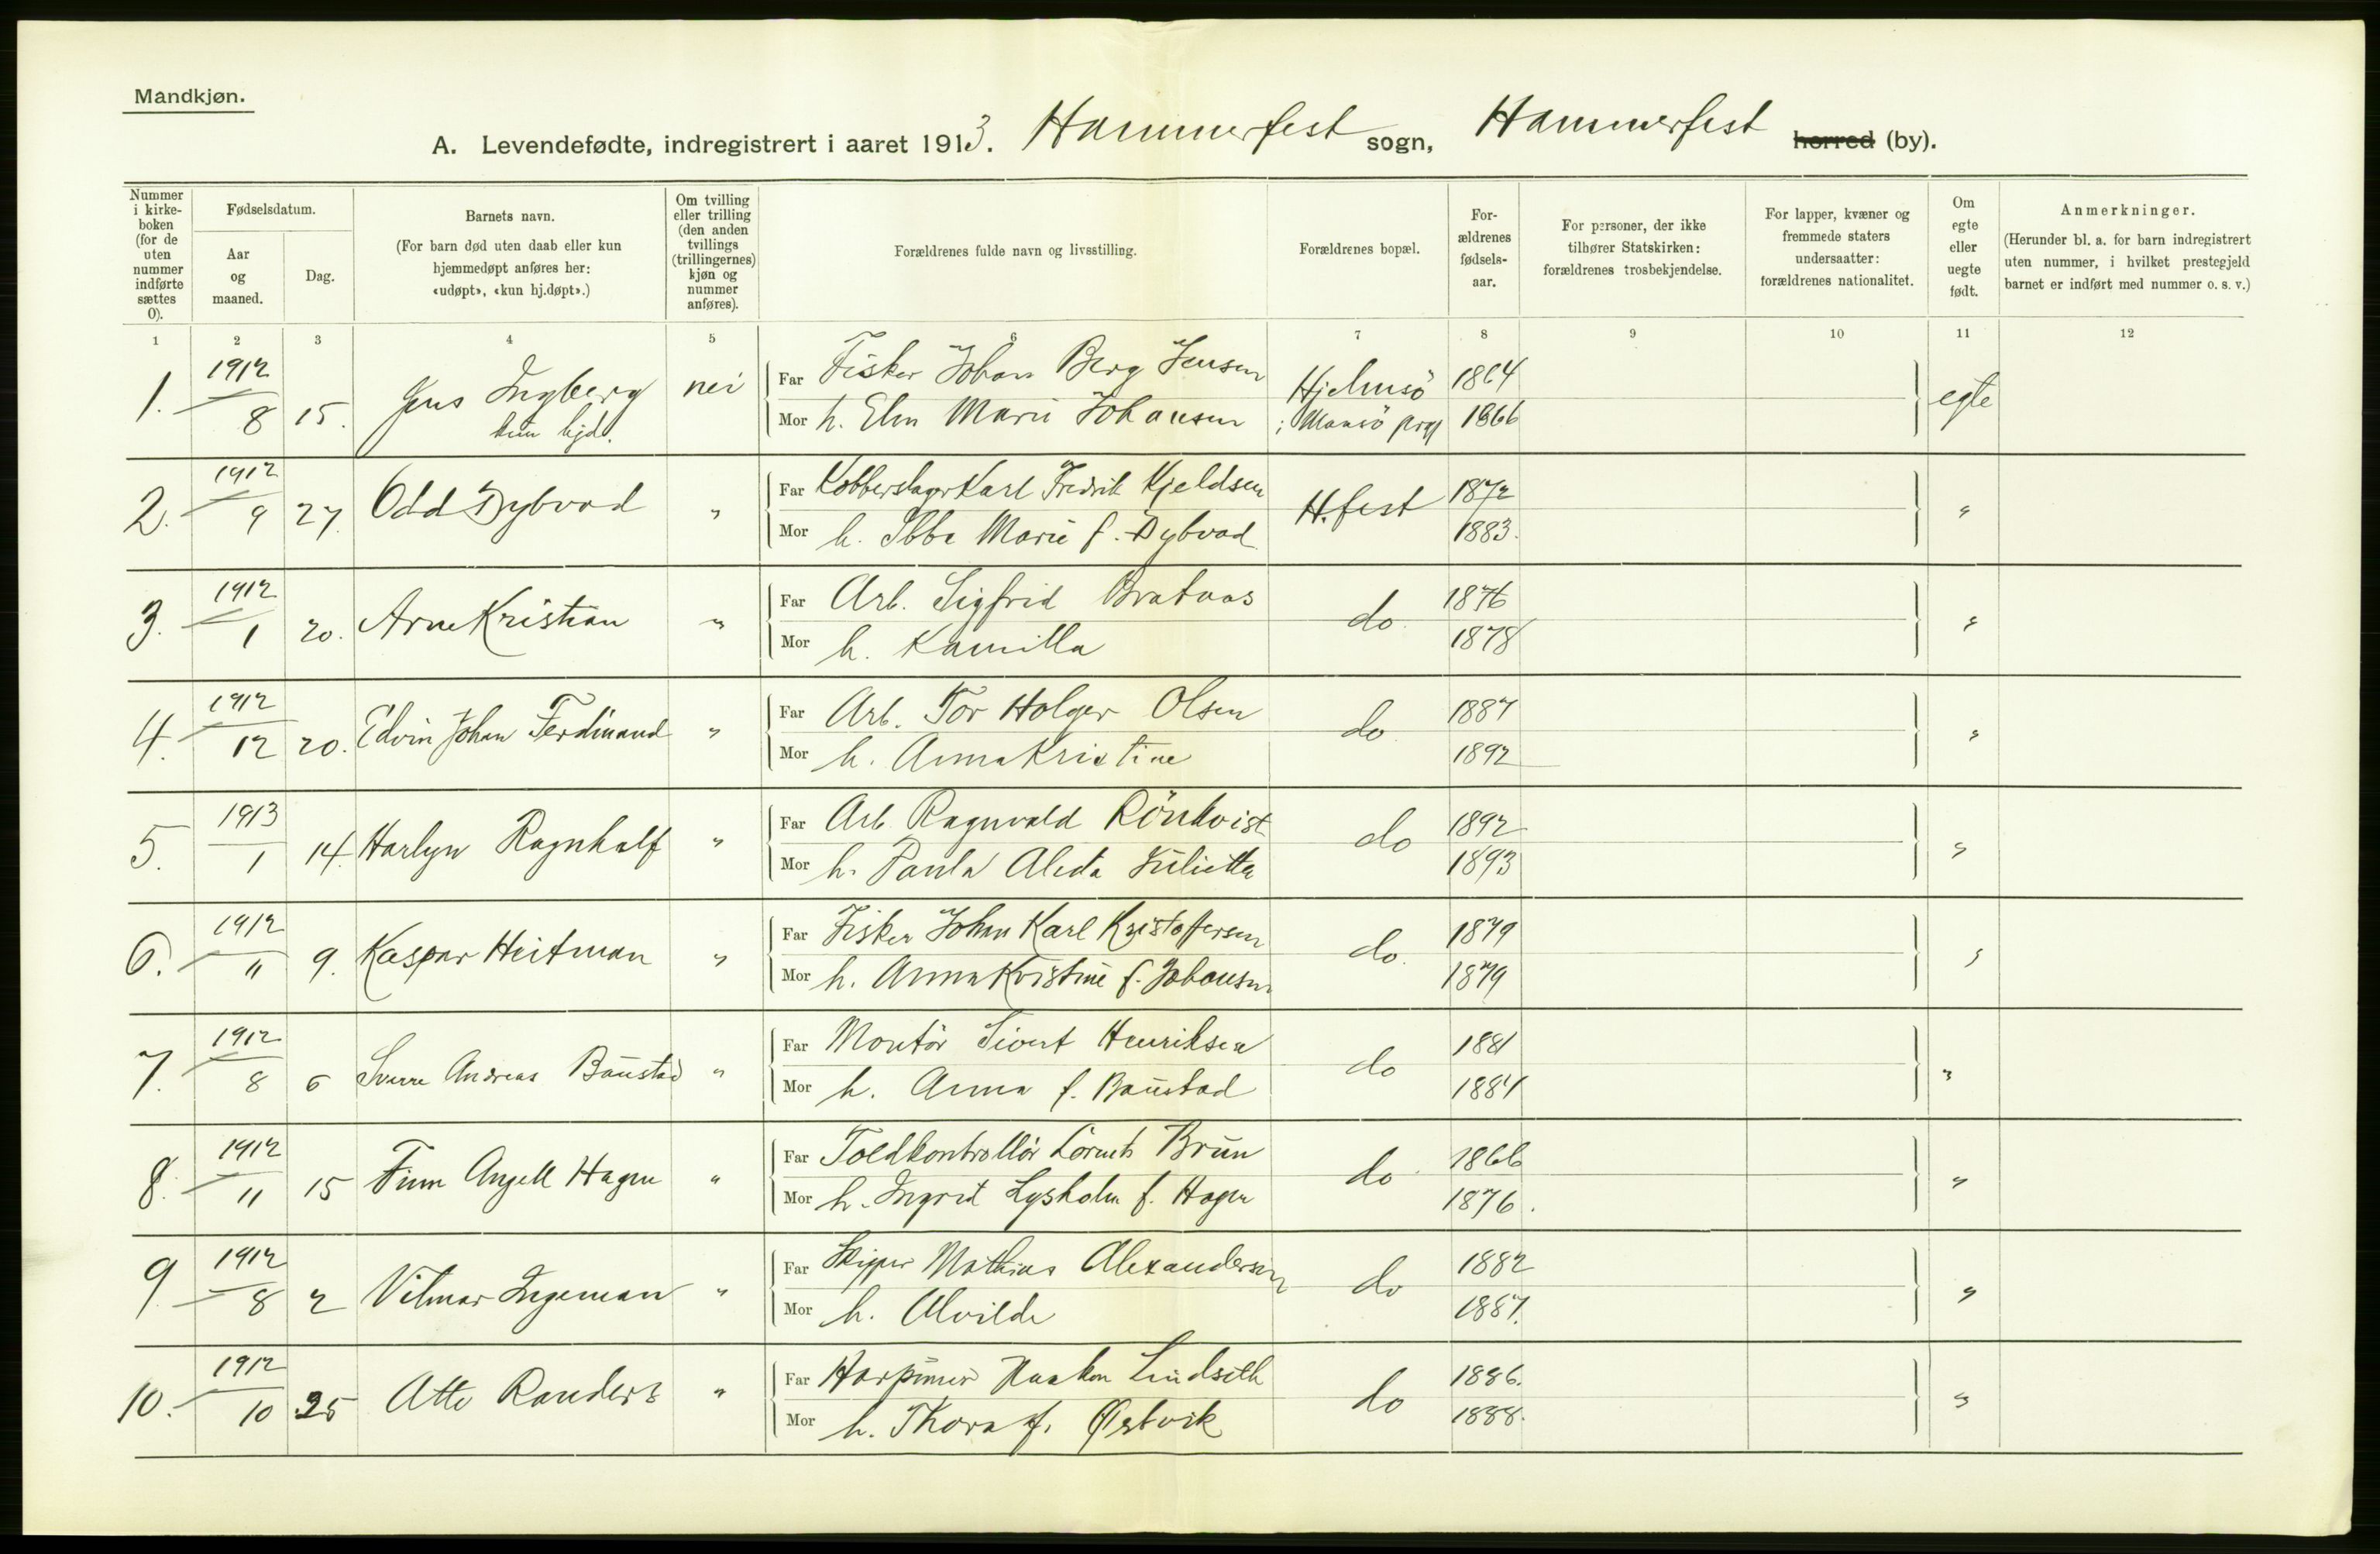 Mandkjøn.
A. Levendefødte, indregistrert i aaret 1913. Hammerfest sogn, Hammerfest herred (by).
Nummer i kirke-boken (for de uten nummer indførte sættes 0).
Fødselsdatum.
Aar og maaned.
Dag.
Barnets navn.
(For barn død uten daab eller kun hjemmedøpt anføres her: «udøpt», «kun hj.døpt».)
Om tvilling eller trilling (den anden tvillings (trillingernes) kjøn og nummer anføres).
Forældrenes fulde navn og livsstilling.
Forældrenes bopæl.
For-ældrenes fødsels-aar.
For personer, der ikke tilhører Statskirken: forældrenes trosbekjendelse.
For lapper, kvæner og fremmede staters undersaatter: forældrenes nationalitet.
Om egte eller uegte født.
Anmerkninger.
(Herunder bl. a. for barn indregistrert uten nummer, i hvilket prestegjeld barnet er indført med nummer o. s. v.)
1 2 3 4 5 6 7 8 9 10 11 12
1. 1912 8 15. Jens Ingberg nei Far Fisker Johan Berg Jensen Hjelmsö 1864 egte
kun hjd. Mor h. Elen Marie Johansen 1866
2. 1912 9 27. Odd Dybvad " Far Kobberslager Karl Fredrik Kjeldsen H.fest 1872 "
Mor h. Ebba Marie f. Dybvad 1883.
3. 1912 1 20. Arne Kristian " Far Arb. Sigfrid Brataas do 1876 "
Mor h. Kamilla 1878
4. 1912 12 20. Edvin Johan Ferdinand " Far Arb. Tor Holger Olsen do 1887 "
Mor h. Anna Kristine 1892
5. 1913 1 14. Harlyn Ragnhalf " Far Arb Ragnvald Rönkvist do 1892 "
Mor h. Paula Alida Julietta 1893
6. 1912 11 9. Kaspar Heitman " Far Fisker Johan Karl Kristoffersen do. 1879 "
Mor h. Anna Kristine f. Johansen 1879
7. 1912 8 6 Sverre Andreas Baustad " Far Montör Sivert Henriksen do 1881 "
Mor h. Anna f. Baustad 1884
8. 1912 11 15 Finn Angell Hagen " Far Toldkontrollör Lorentz Brun do 1866 "
Mor h. Ingrid Lysholm f. Hagen 1876.
9 1912 8 2 Vilmar Ingeman " Far Skipper Mathias Alexandersen do 1882 "
Mor h. Alvilde 1887.
10. 1912 10 25 Atte Randers " Far Haakon Lindseth do 1886. "
Mor h. Thora f. Østvik 1888.